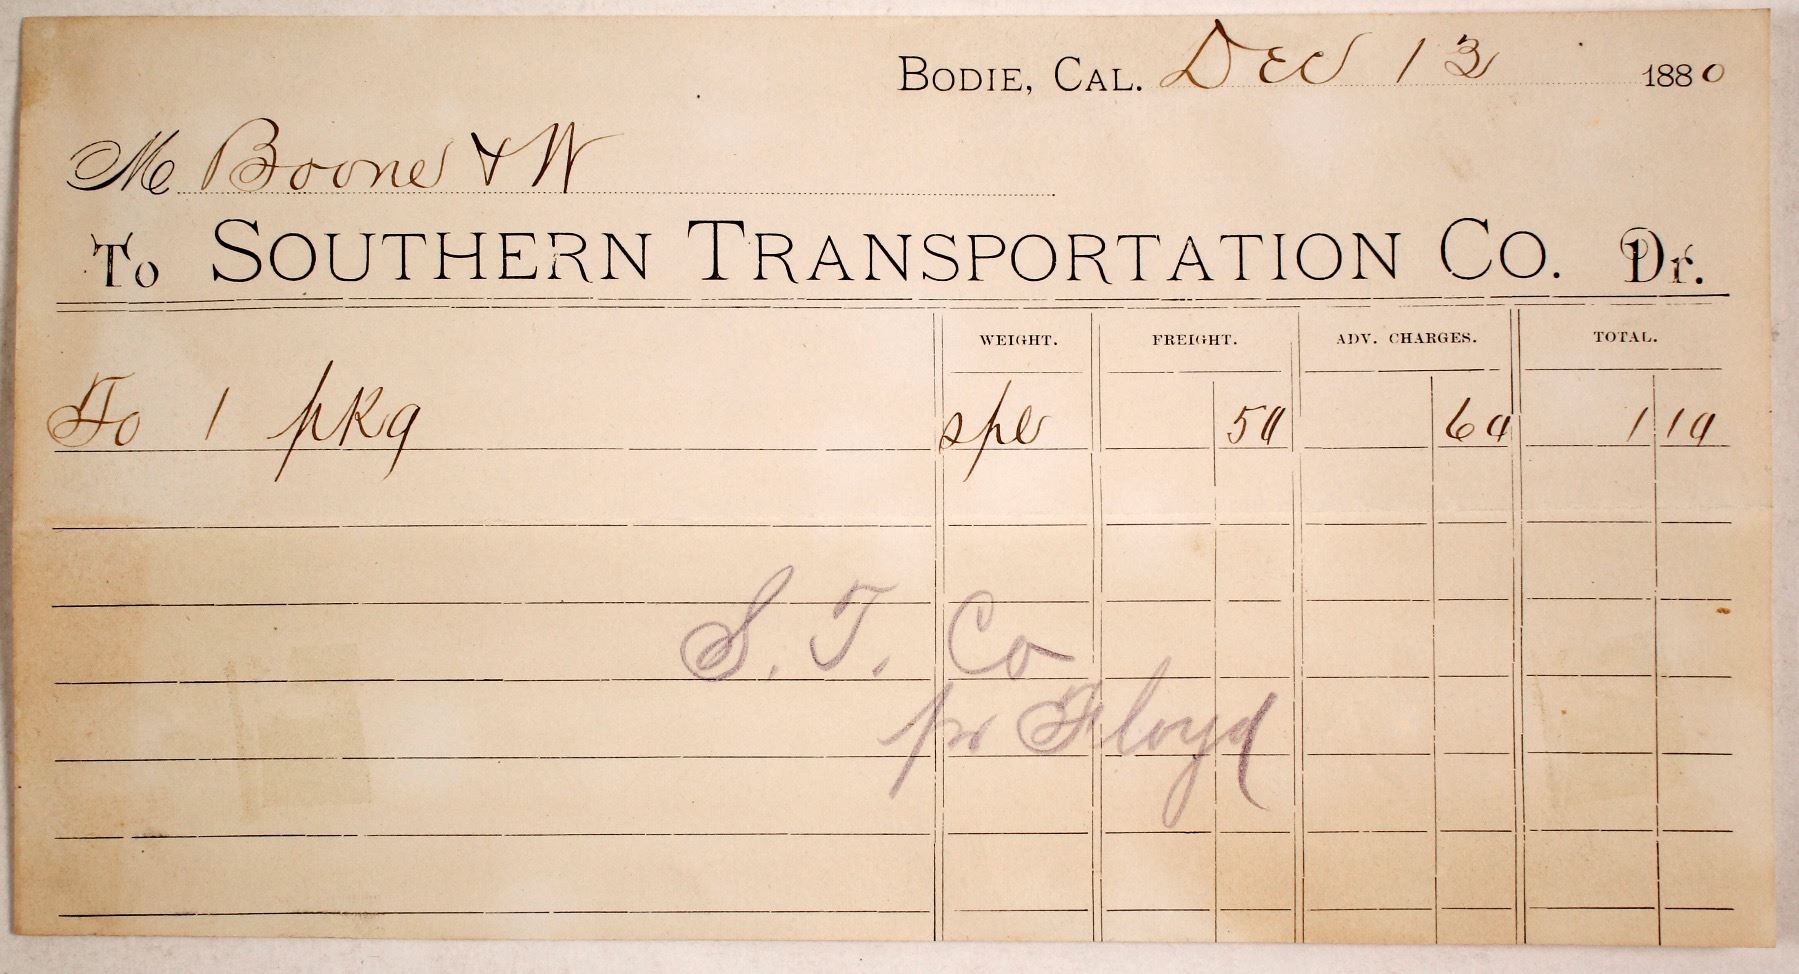 BODIE, CAL. Dec 13 1880
M Boone & W
To SOUTHERN TRANSPORTATION CO. Dr.
WEIGHT. FREIGHT. ADV. CHARGES. TOTAL.
To 1 pkg spl 50 60 1 10
S. T. Co
pr Floyd